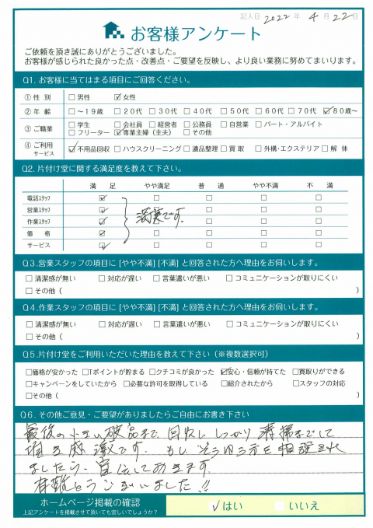 記入日 2022年 4月 22日
お客様アンケート
ご依頼を頂き誠にありがとうございました。
お客様が感じられた良かった点・改善点・ご要望を反映し、より良い業務に努めてまいります。
Q1. お客様に当てはまる項目にご回答ください。
①性 別 □男性 ☑女性
②年 齢 □~19歳 □20代 □30代 □40代 □50代 □60代 □70代 ☑80歳~
③ご職業 □学生 □会社員 □経営者 □公務員 □自営業 □パート・アルバイト
□フリーター ☑専業主婦(主夫) □その他
④ご利用サービス ☑不用品回収 □ハウスクリーニング □遺品整理 □買取 □外構・エクステリア □解体
Q2. 片付け堂に関する満足度を教えて下さい。
満 足 やや満足 普 通 やや不満 不 満
電話スタッフ ☑ □ □ □ □
営業スタッフ ☑ □ □ □ □
作業スタッフ ☑ 満足です。 □ □ □ □
価 格 ☑ □ □ □ □
サービス ☑ □ □ □ □
Q3. 営業スタッフの項目に[やや不満][不満]と回答された方へ理由をお伺いします。
□清潔感が無い □対応が遅い □言葉遣いが悪い □コミュニケーションが取りにくい
□その他(
Q4. 作業スタッフの項目に[やや不満][不満]と回答された方へ理由をお伺いします。
□清潔感が無い □対応が遅い □言葉遣いが悪い □コミュニケーションが取りにくい
□その他(
Q5. 片付け堂をご利用いただいた理由を教えて下さい(※複数選択可)
□価格が安かった □Tポイントが貯まる □クチコミが良かった ☑安心・信頼が持てた □買取りができる
□キャンペーンをしていたから □必要な許可を取得している □紹介されたから □スタッフの対応
□その他(
Q6. その他ご意見・ご要望がありましたらご自由にお書き下さい
最後の小さい破品まで回収し しっかり 清掃までして
頂き感激です。もし
ましたら 宣伝しておきます。
有難とうございました!!
ホームページ掲載の確認
上記アンケートを掲載させて頂いても宜しいでしょうか?
☑はい □いいえ